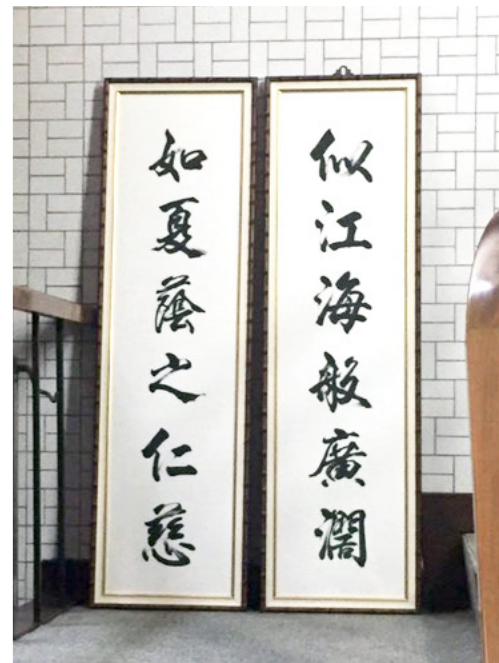 似江海般廣濶
如夏蔭之仁慈